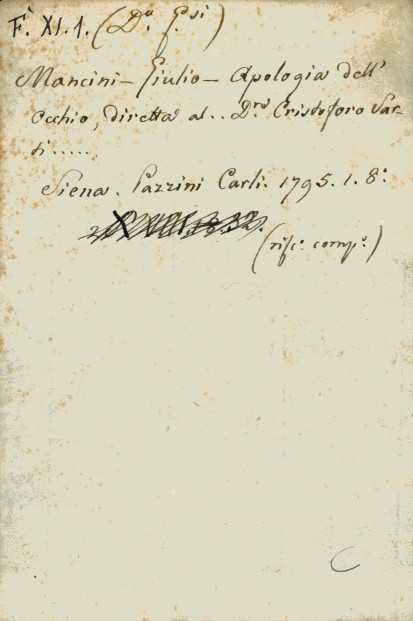 F. XI. 1. (Dᵃ. Eˢⁱ)
Mancini – Giulio – Apologia dell'
Occhio, diretta al .. Dʳᵉ Cristoforo Sar-
ti .....
Siena. Pazzini Carli. 1795. 1. 8°.
(rifᶜ. comp°.)
C